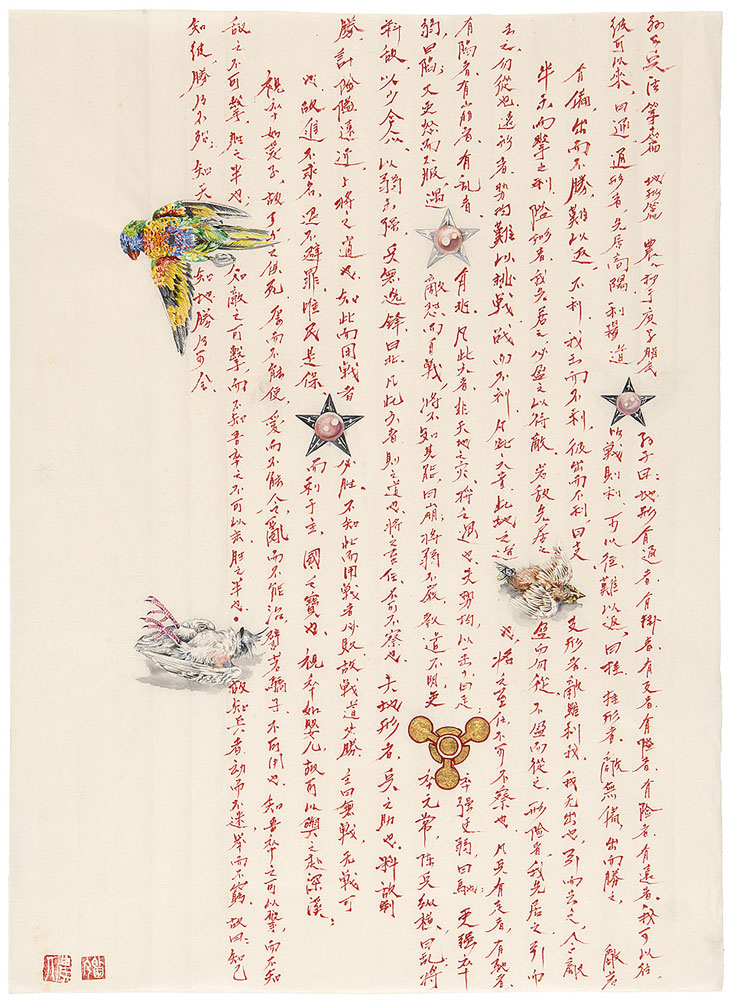 孙子兵法第十篇 地形篇 于庚子腊 孙子曰:地形有通者,有掛者,有支者,有隘者,有险者,有遠者。我可以往,
彼可以來,曰通,通形者,先居高陽,利糧道 以戰則利。可以往,難以返,曰挂,挂形者,敵無備,出而勝之,敵若
有備,出而不勝,難以返,不利,我出而不利,彼出而不利,曰支 支形者,敵雖利我,我无出也,引而去之,令敵
半出而擊之利,隘形者,我先居之,必盈之以待敵 若敵先居之 盈而勿從,不盈而從之,形險者,我先居之,引而
去之,勿從也,遠形者,势均難以挑戰,战而不利,凡此六者,此地之道也,将之至任不可不察也 凡兵有走者,有弛者,
有陷者,有崩者,有乱者,有北,凡此六者,非天地之灾,将之過也,夫勢均,以一击十曰走;卒强吏弱,曰弛;吏强卒
弱,曰陷;大吏怒而不服,遇 敵怼而自戰,将不知其能,曰崩;将弱不嚴,教道不明,吏卒无常,陈兵纵横,曰乱将
料敌,以少合众,以弱击强,兵無选锋,曰北,凡此六者則之道也,将之至任,不可不察也 夫地形者,兵之助也,料敌制
勝,計险隘遠近,上将之道也,知此而用戰者 必胜,不知此而用戰者必败 故戰道必勝 主曰無戰,无戰可
也,故進不求名,退不避罪,唯民是保,而利于主,國之寶也,視卒如嬰儿,故可以與之赴深溪;
視卒如爱子,故可与之俱死,厚而不能使,爱而不能令,亂而不能治,譬若驕子,不可用也,知吾卒之可以擊,而不知
敌之不可擊,胜之半也;知敵之可擊,而不知吾卒之不可以击 胜之半也。故知兵者,动而不迷,举而不窮,故曰:知己
知彼,勝乃不殆;知天 知地勝乃可全.